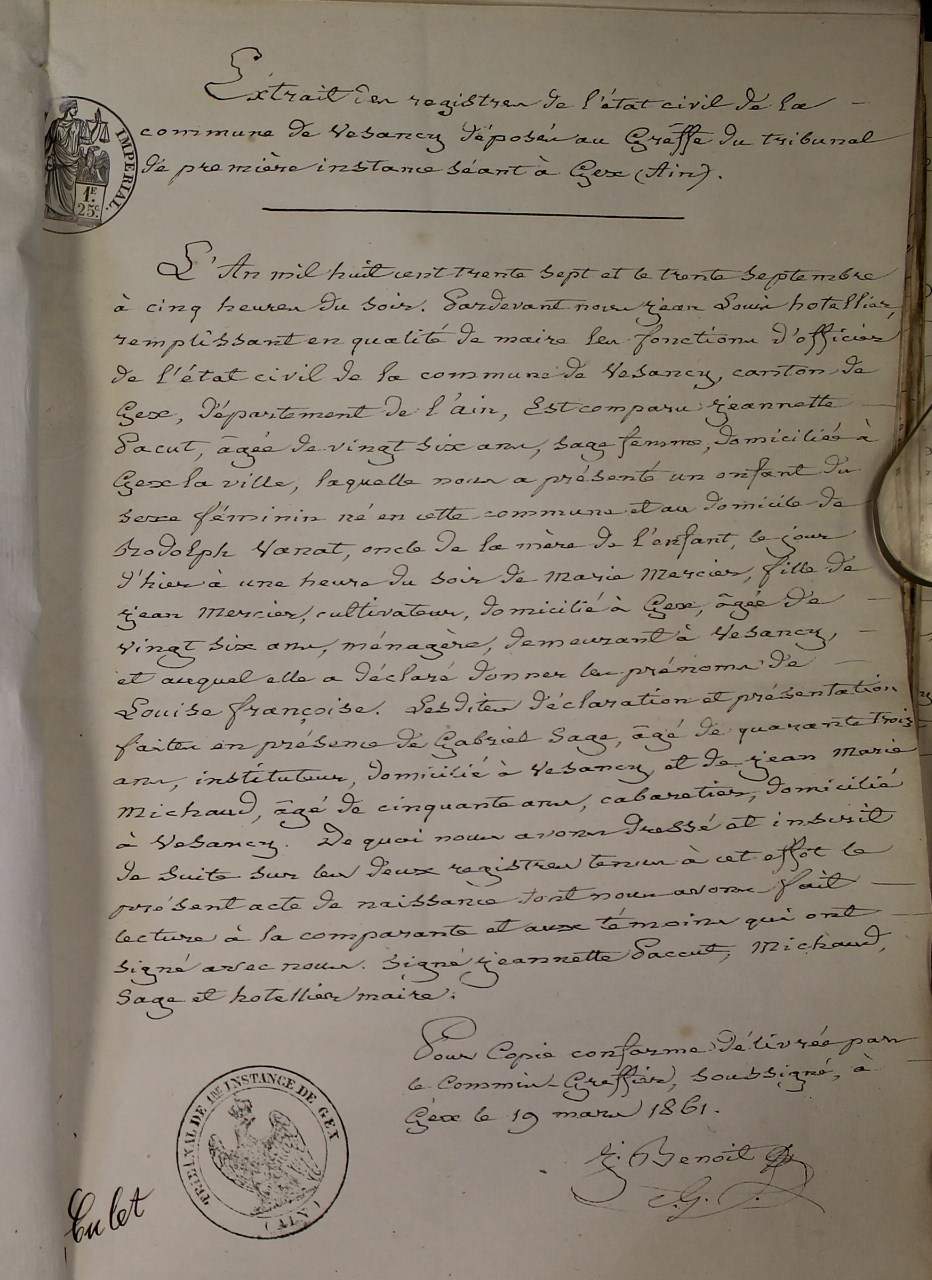 Extrait des registres de l'état civil de la
commune de Vesancy déposés au Greffe du tribunal
de première instance séant à Gex (Ain).
IMPERIAL.
1F.
25c.
L'An mil huit cent trente sept et le trente septembre
à cinq heures du soir. Pardevant nous Jean Louis hotellier,
remplissant en qualité de maire les fonctions d'officier
de l'état civil de la commune de Vesancy, canton de
Gex, département de l'Ain, Est comparu Jeannette
Pacut, âgée de vingt six ans, sage femme, domiciliée à
Gex la ville, laquelle nous a présenté un enfant du
sexe féminin né en cette commune et au domicile de
Rodolph Vanat, oncle de la mère de l'enfant, le jour
d'hier à une heure du soir de Marie Mercier, fille de
Jean Mercier, cultivateur, domicilié à Gex, âgée de
vingt six ans, ménagère, demeurant à Vesancy,
et auquel elle a déclaré donner les prénoms de
Louise françoise. Lesdites déclaration et présentation
faites en présence de Gabriel Sage, âgé de quarante trois
ans, instituteur, domicilié à Vesancy et de Jean Marie
Michaud, âgé de cinquante ans, cabaretier, domicilié
à Vesancy. De quoi nous avons dressé et inscrit
de suite sur les deux registres tenus à cet effet le
présent acte de naissance dont nous avons fait
lecture à la comparante et aux témoins qui ont
signé avec nous. Signé Jeannette Paccut, Michaud,
Sage et hotellier maire.
Pour Copie conforme délivrée par
le Commis-Greffier, soussigné, à
Gex le 19 mars 1861.
J. Benoit
C. G.
TRIBUNAL DE 1RE INSTANCE DE GEX
(AIN)